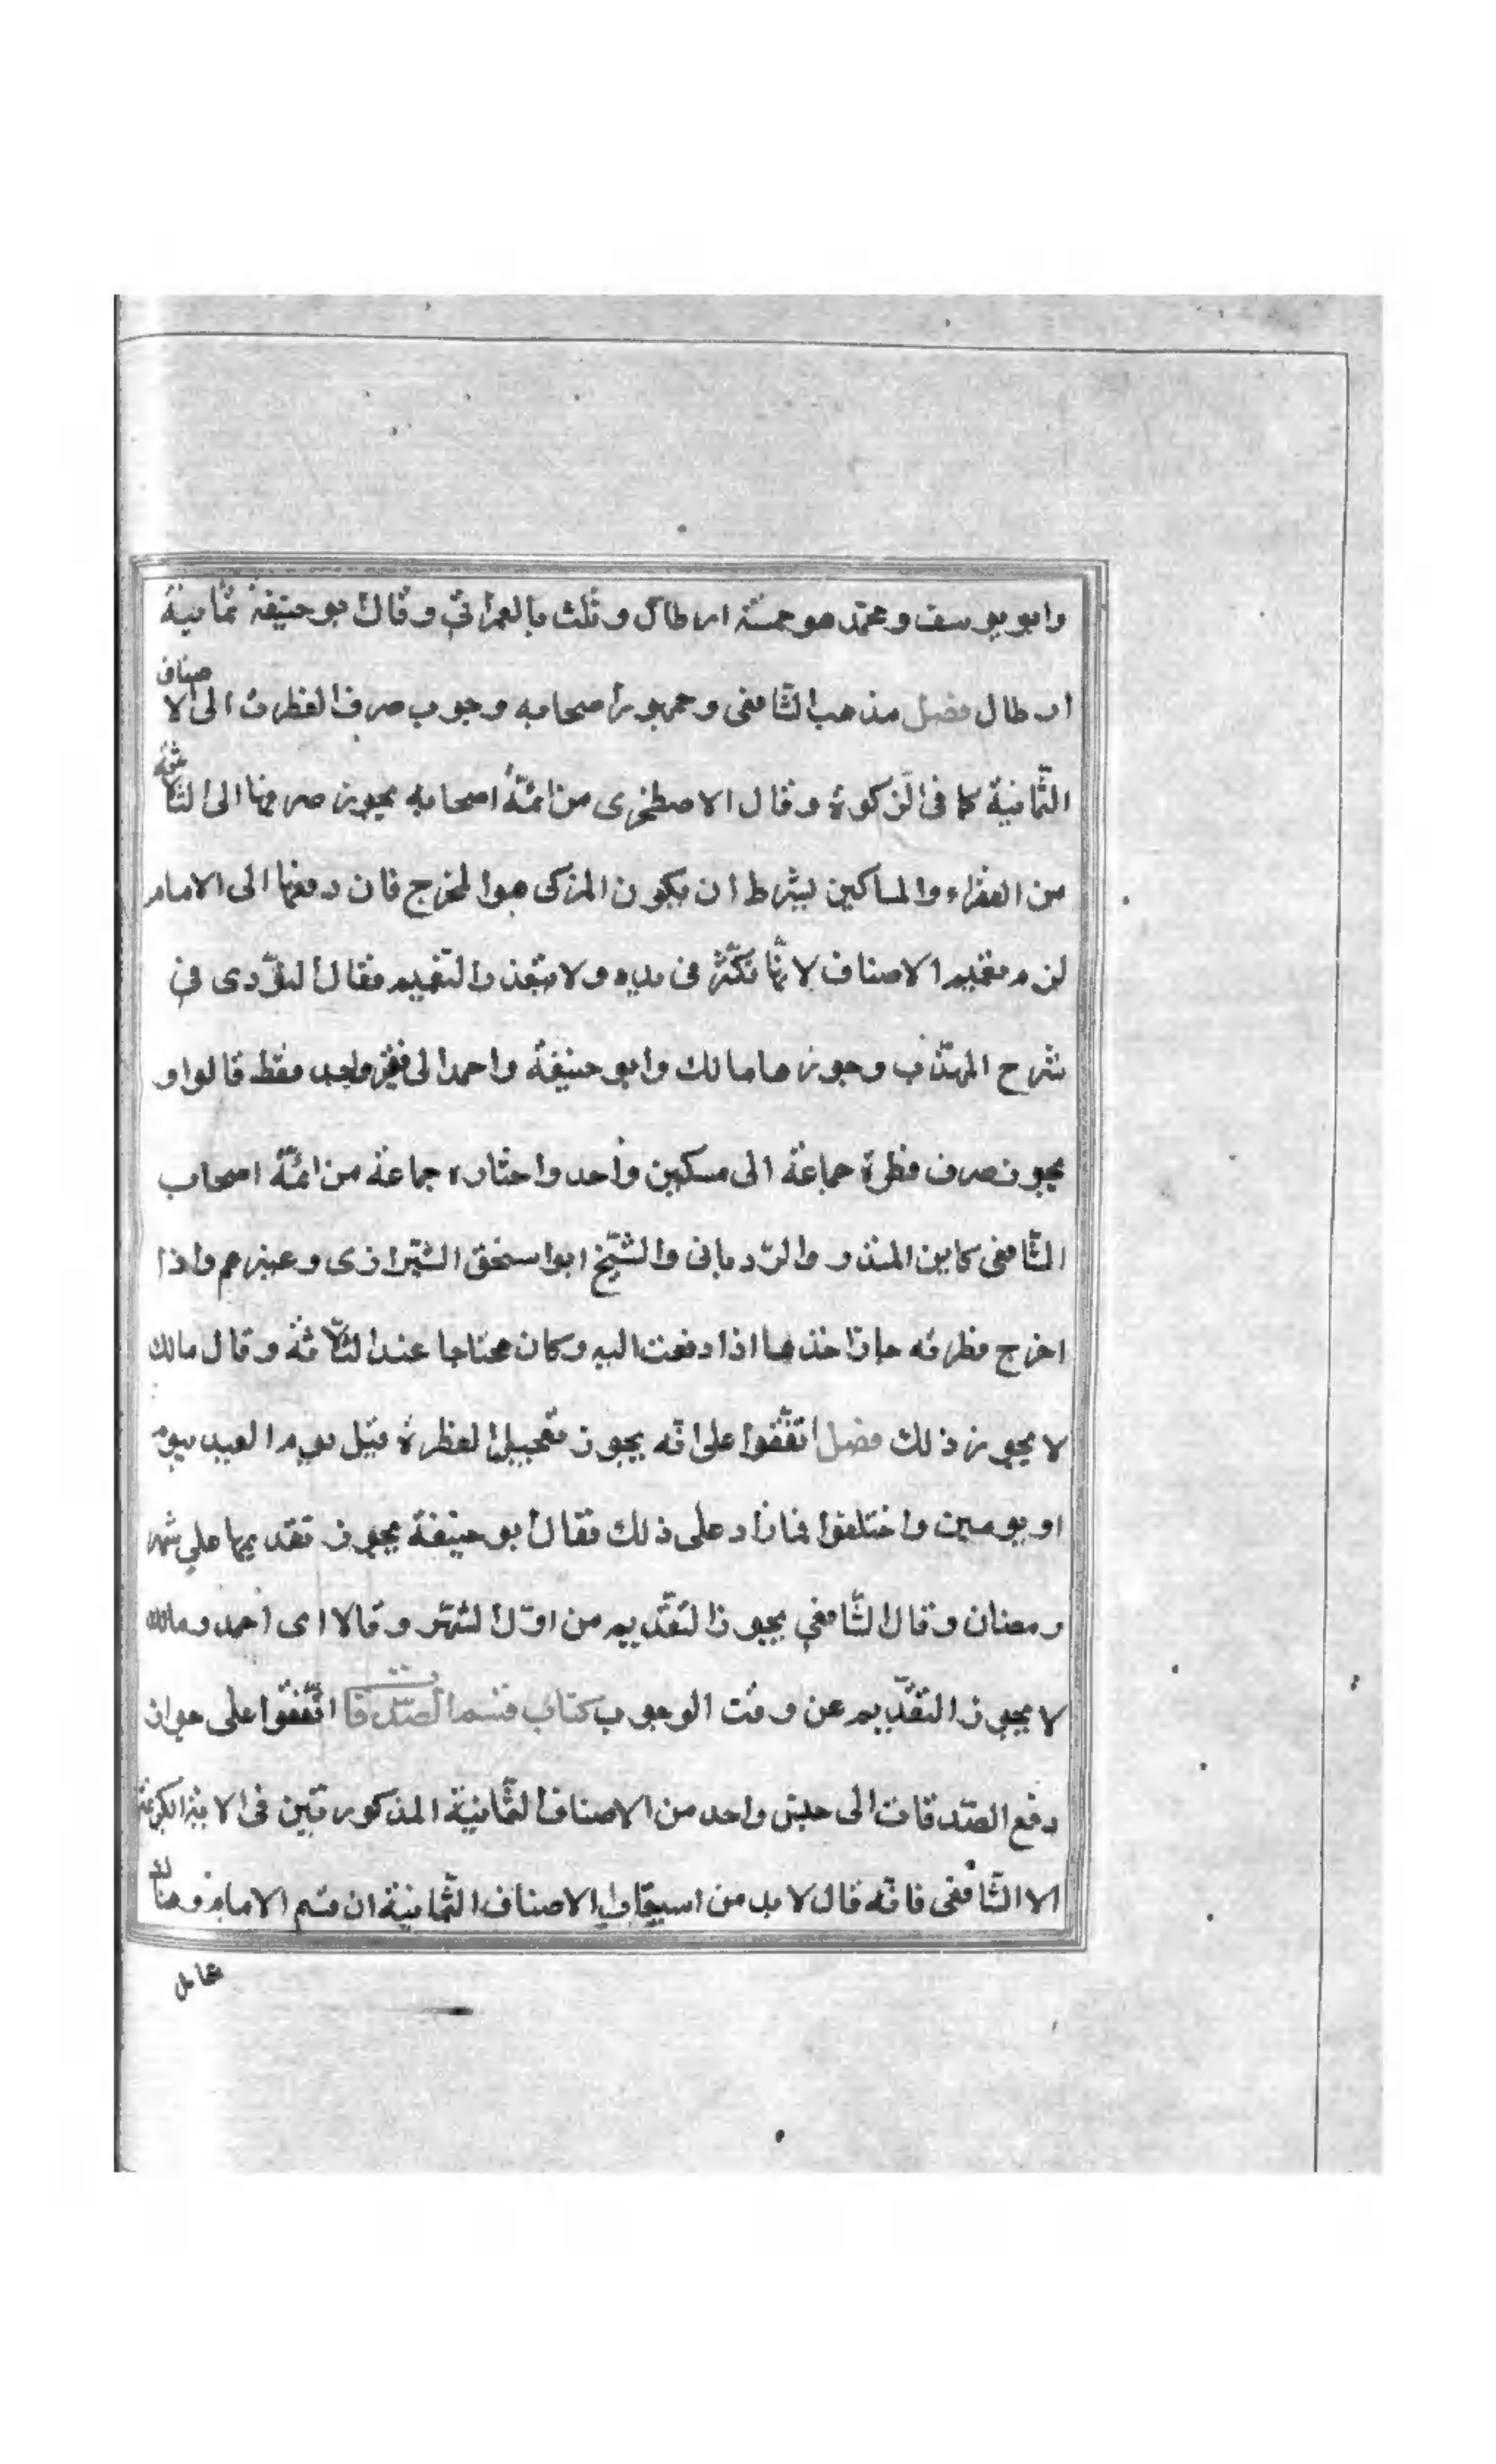 وابو يوسف ومحمد هو خمسة ارطال وثلث بالعراقي وقال ابو حنيفة ثمانية
ارطال فصل مذهب الشافعى وجمهور اصحابه وجوب صرف الفطرت الى الاصناف
الثمانية كما فى الزكوة وقال الاصطخرى من ائمة اصحابه يجوز صرفها الى الثلاثة
من الفقراء والمساكين بشرط ان يكون المزكى هو المخرج فان دفعها الى الامام
لزمه تعميم الاصناف لانها تكثر فى يده ولا يتعذر التعميم فقال النووى فى
شرح المهذب وجوزها مالك وابو حنيفة واحمد الى فقير واحد فقط قالوا و
يجوز صرف فطرة جماعة الى مسكين واحد واختاره جماعة من ائمة اصحاب
الشافعى كابن المنذر والرويانى والشيخ ابو اسحق الشيرازى وغيرهم واذا
اخرج فطرته جاز اخذها اذا دفعت اليه وكان محتاجا عند الثلاثة وقال مالك
لا يجوز ذلك فصل اتفقوا على انه يجوز تعجيل الفطرة قبل يوم العيد بيوم
او يومين واختلفوا فيما زاد على ذلك فقال ابو حنيفة يجوز تقديمها على شهر
رمضان وقال الشافعي يجوز التقديم من اول الشهر وقالا اى احمد ومالك
لا يجوز التقديم عن وقت الوجوب كتاب قسم الصدقات اتفقوا على جواز
دفع الصدقات الى جنس واحد من الاصناف الثمانية المذكورتين فى الاية الكريمة
الا الشافعى فانه قال لا بد من استيعاب الاصناف الثمانية ان قسم الامام وهناك
عامل